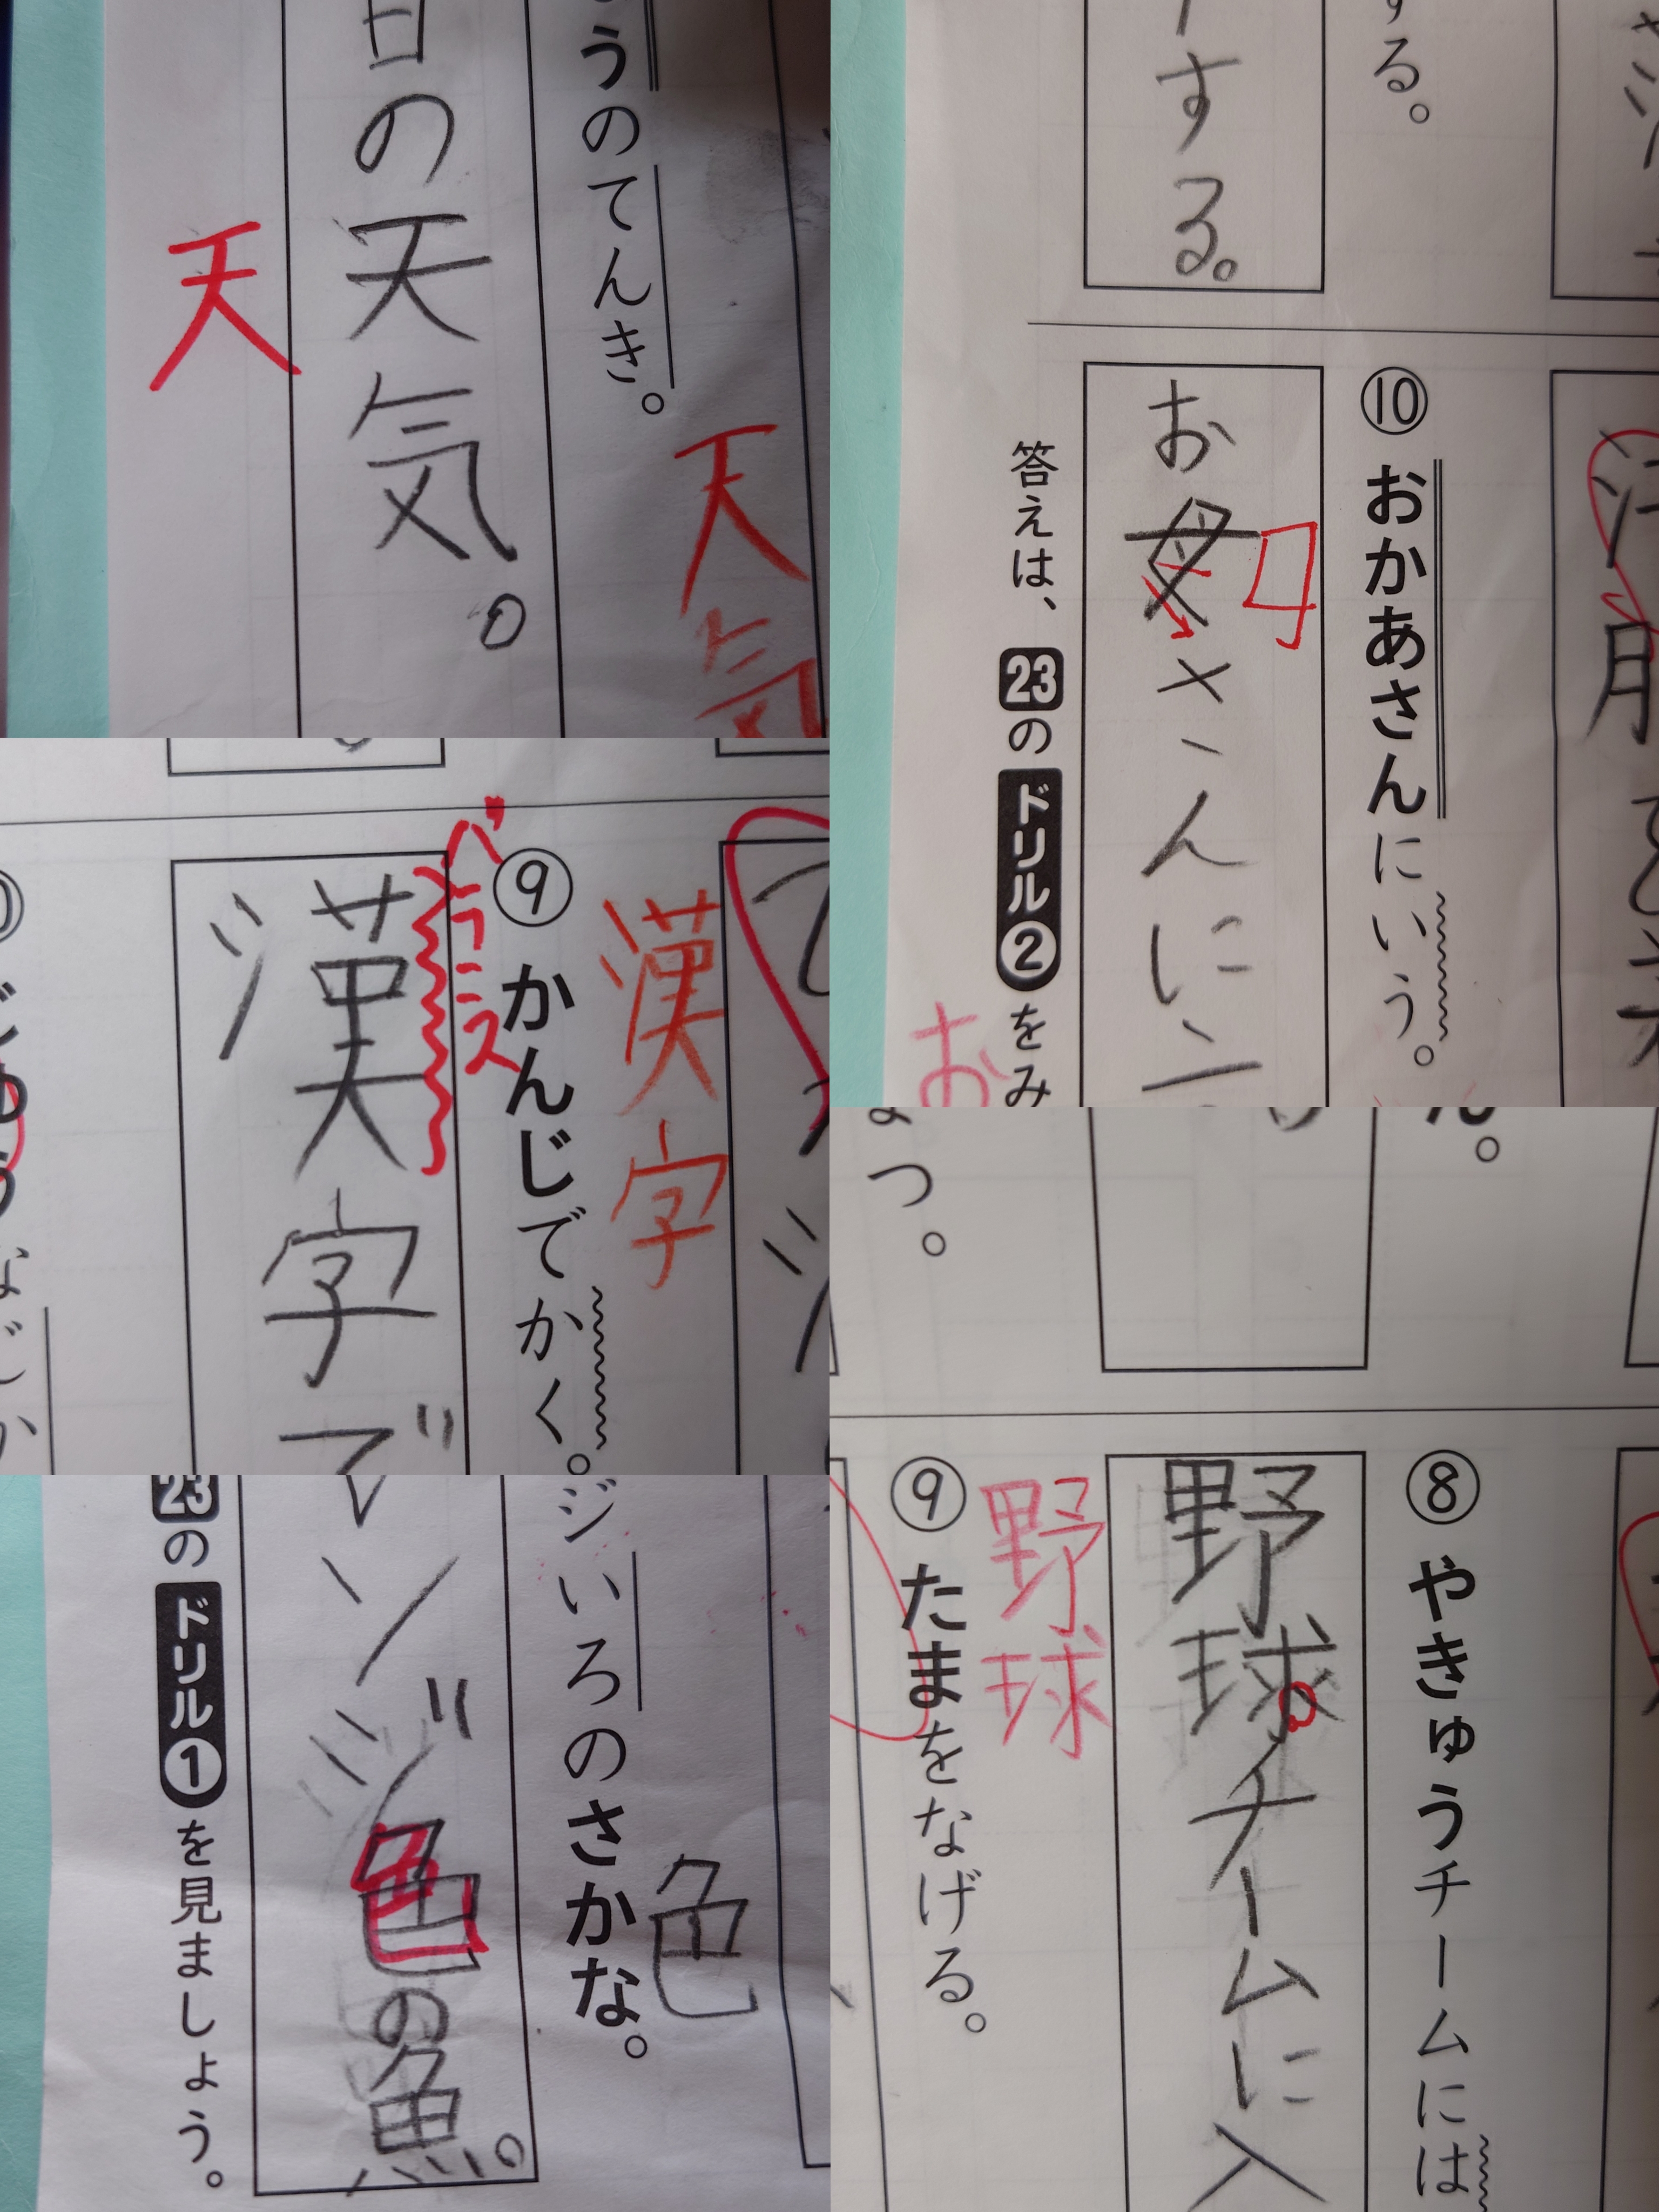 うのてんき。
日の天気。
天
天気
する。
する。
⑩ おかあさんにいう。
お母さんに言
答えは、23のドリル②をみ
お
⑨ かんじでかく。
漢字
バランス
漢字で
ジいろのさかな。
色
ンジ色の魚。
23のドリル①を見ましょう。
つ。
ん。
⑧ やきゅうチームには
野球チームに入
野球
⑨ たまをなげる。